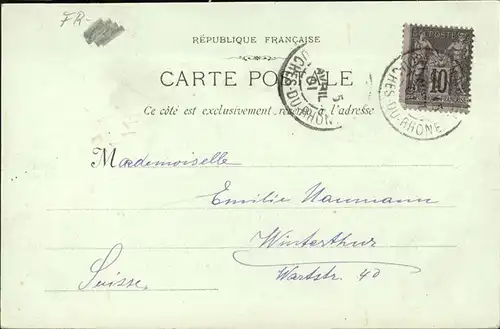 FR-
RÉPUBLIQUE FRANÇAISE
CARTE POSTALE
Ce côté est exclusivement réservé à l'adresse
POSTE
10
OUCHES-DU-RHÔNE
5
AVRIL
01
CHES-DU-RHONE
Mademoiselle
Emilie Naumann
Winterthur
Wartstr. 40
Suisse.